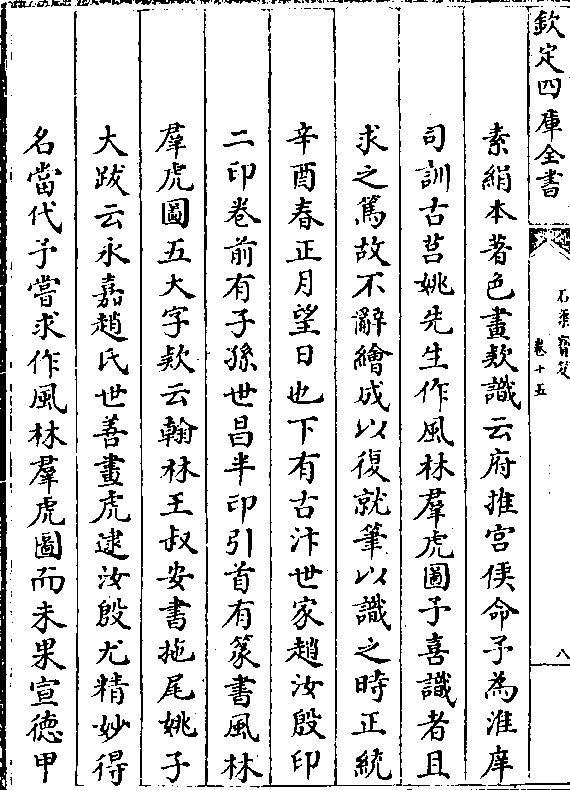 欽定四庫全書
石渠寶笈
卷十五
八
素絹本著色畫欵識云府推宫侯命予為淮庠
司訓古莒姚先生作風林羣虎圖予喜識者且
求之篤故不辭繪成以復就筆以識之時正統
辛酉春正月望日也下有古汴世家趙汝殷印
二印卷前有子孫世昌半印引首有篆書風林
羣虎圖五大字欵云翰林王叔安書拖尾姚子
大跋云永嘉趙氏世善畫虎逮汝殷尤精妙得
名當代予嘗求作風林羣虎圖而未果宣德甲